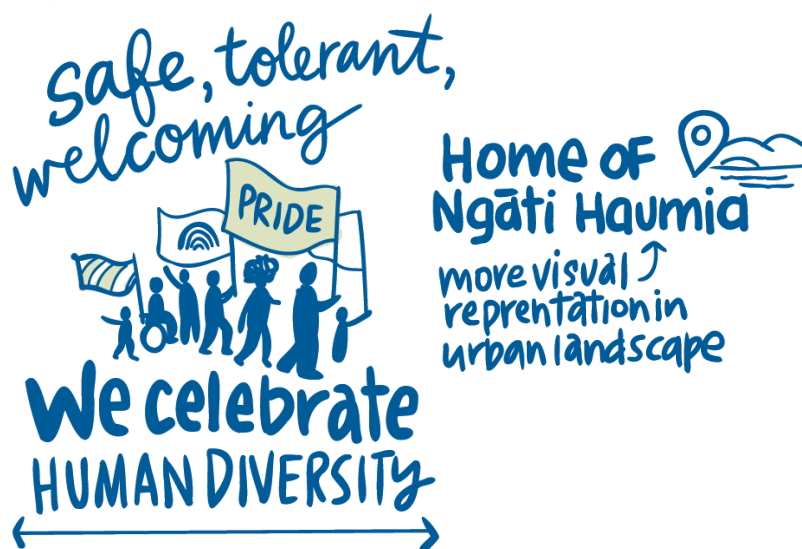 safe, tolerant,
welcoming
PRIDE
We celebrate
HUMAN DIVERSITY
Home of
Ngāti Haumia
more visual
reprentation in
urban landscape